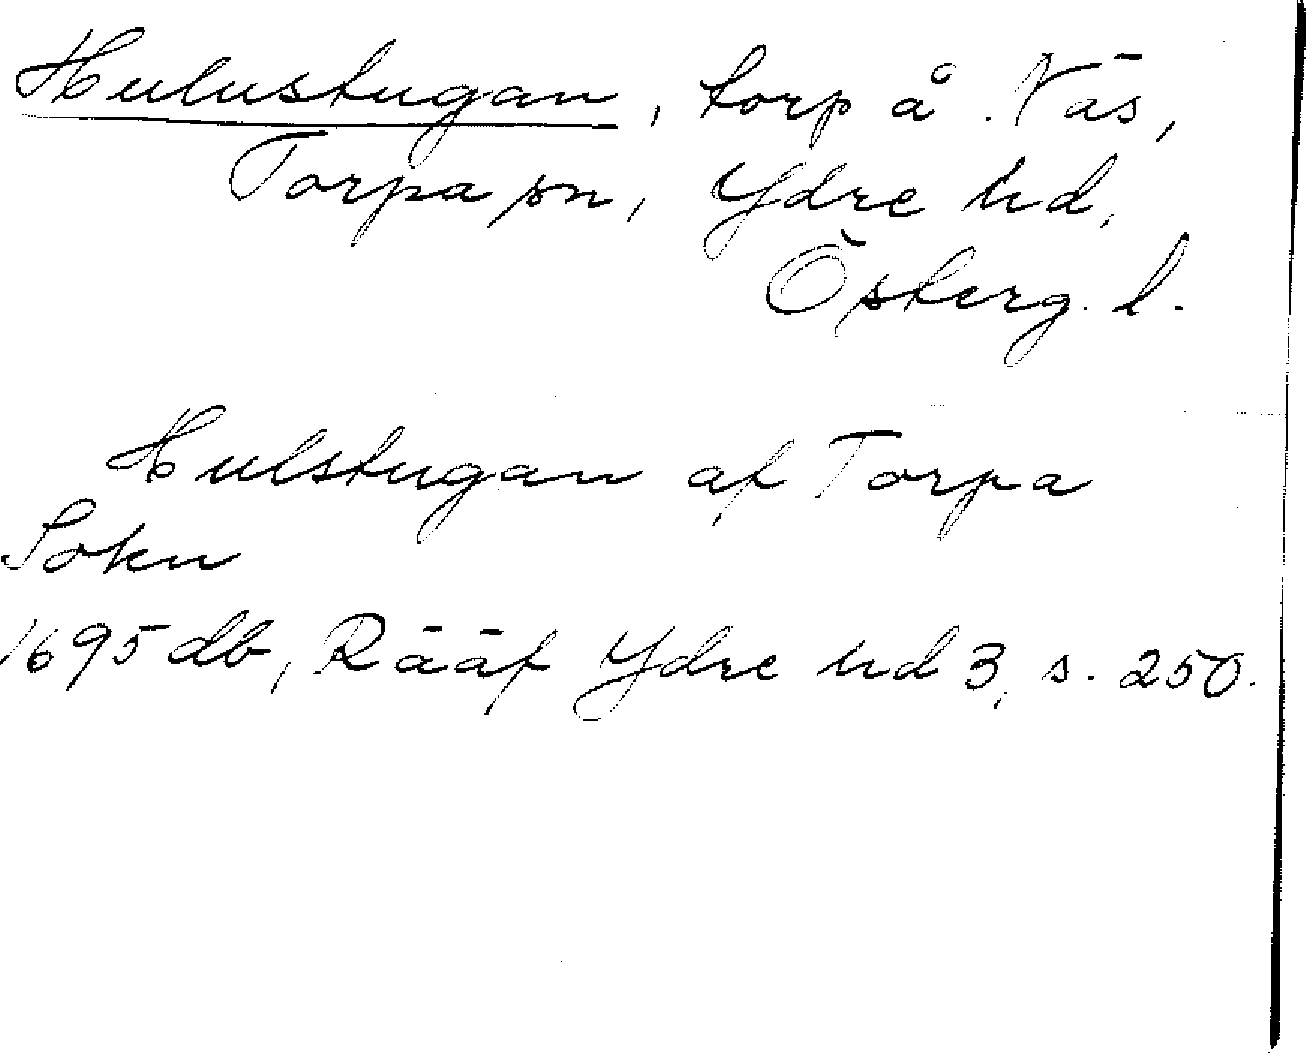 Hulustugan, torp å Näs,
Torpa sn, Ydre hd,
Österg. l.
Hulstugan af Torpa
Sokn
1695 db, Rääf Ydre hd 3, s. 250.